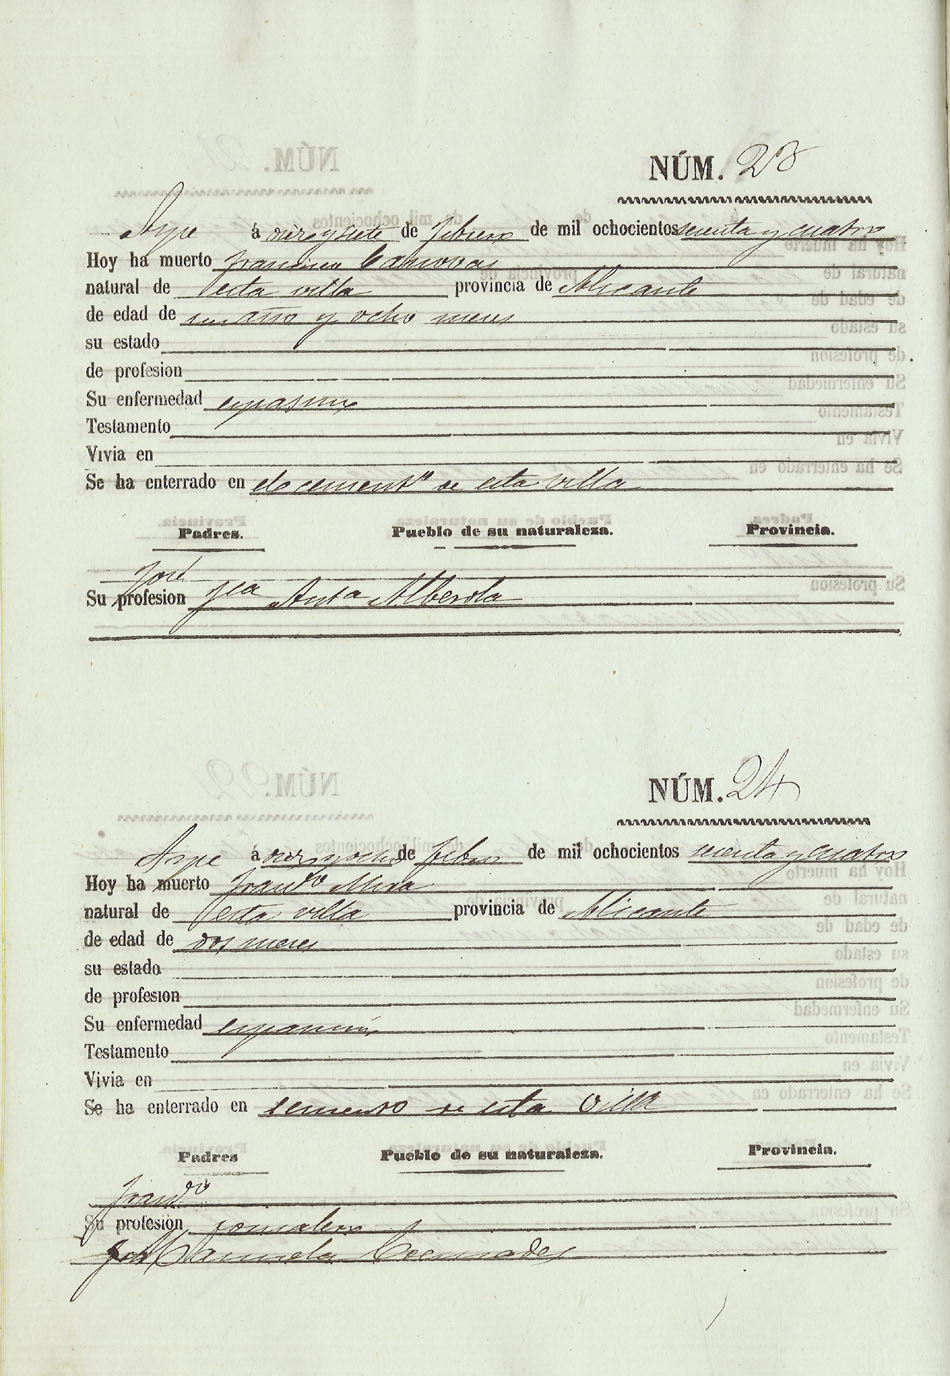 NÚM. 23
Aspe á diez y siete de Febrero de mil ochocientos sesenta y cuatro
Hoy ha muerto Francisco Canovas
natural de esta villa provincia de Alicante
de edad de un año y ocho meses
su estado
de profesion
Su enfermedad espasmo
Testamento
Vivia en
Se ha enterrado en el cementº de esta villa
Padres. Pueblo de su naturaleza. Provincia.
José
Su profesion y Anta Alberola
NÚM. 24
Aspe á diez y ocho de Febrero de mil ochocientos sesenta y cuatro
Hoy ha muerto Franco Mira
natural de esta villa provincia de Alicante
de edad de dos meses
su estado
de profesion
Su enfermedad
Testamento
Vivia en
Se ha enterrado en cemento de esta Villa
Padres Pueblo de su naturaleza. Provincia.
Franco
Su profesion jornalero
Manuela